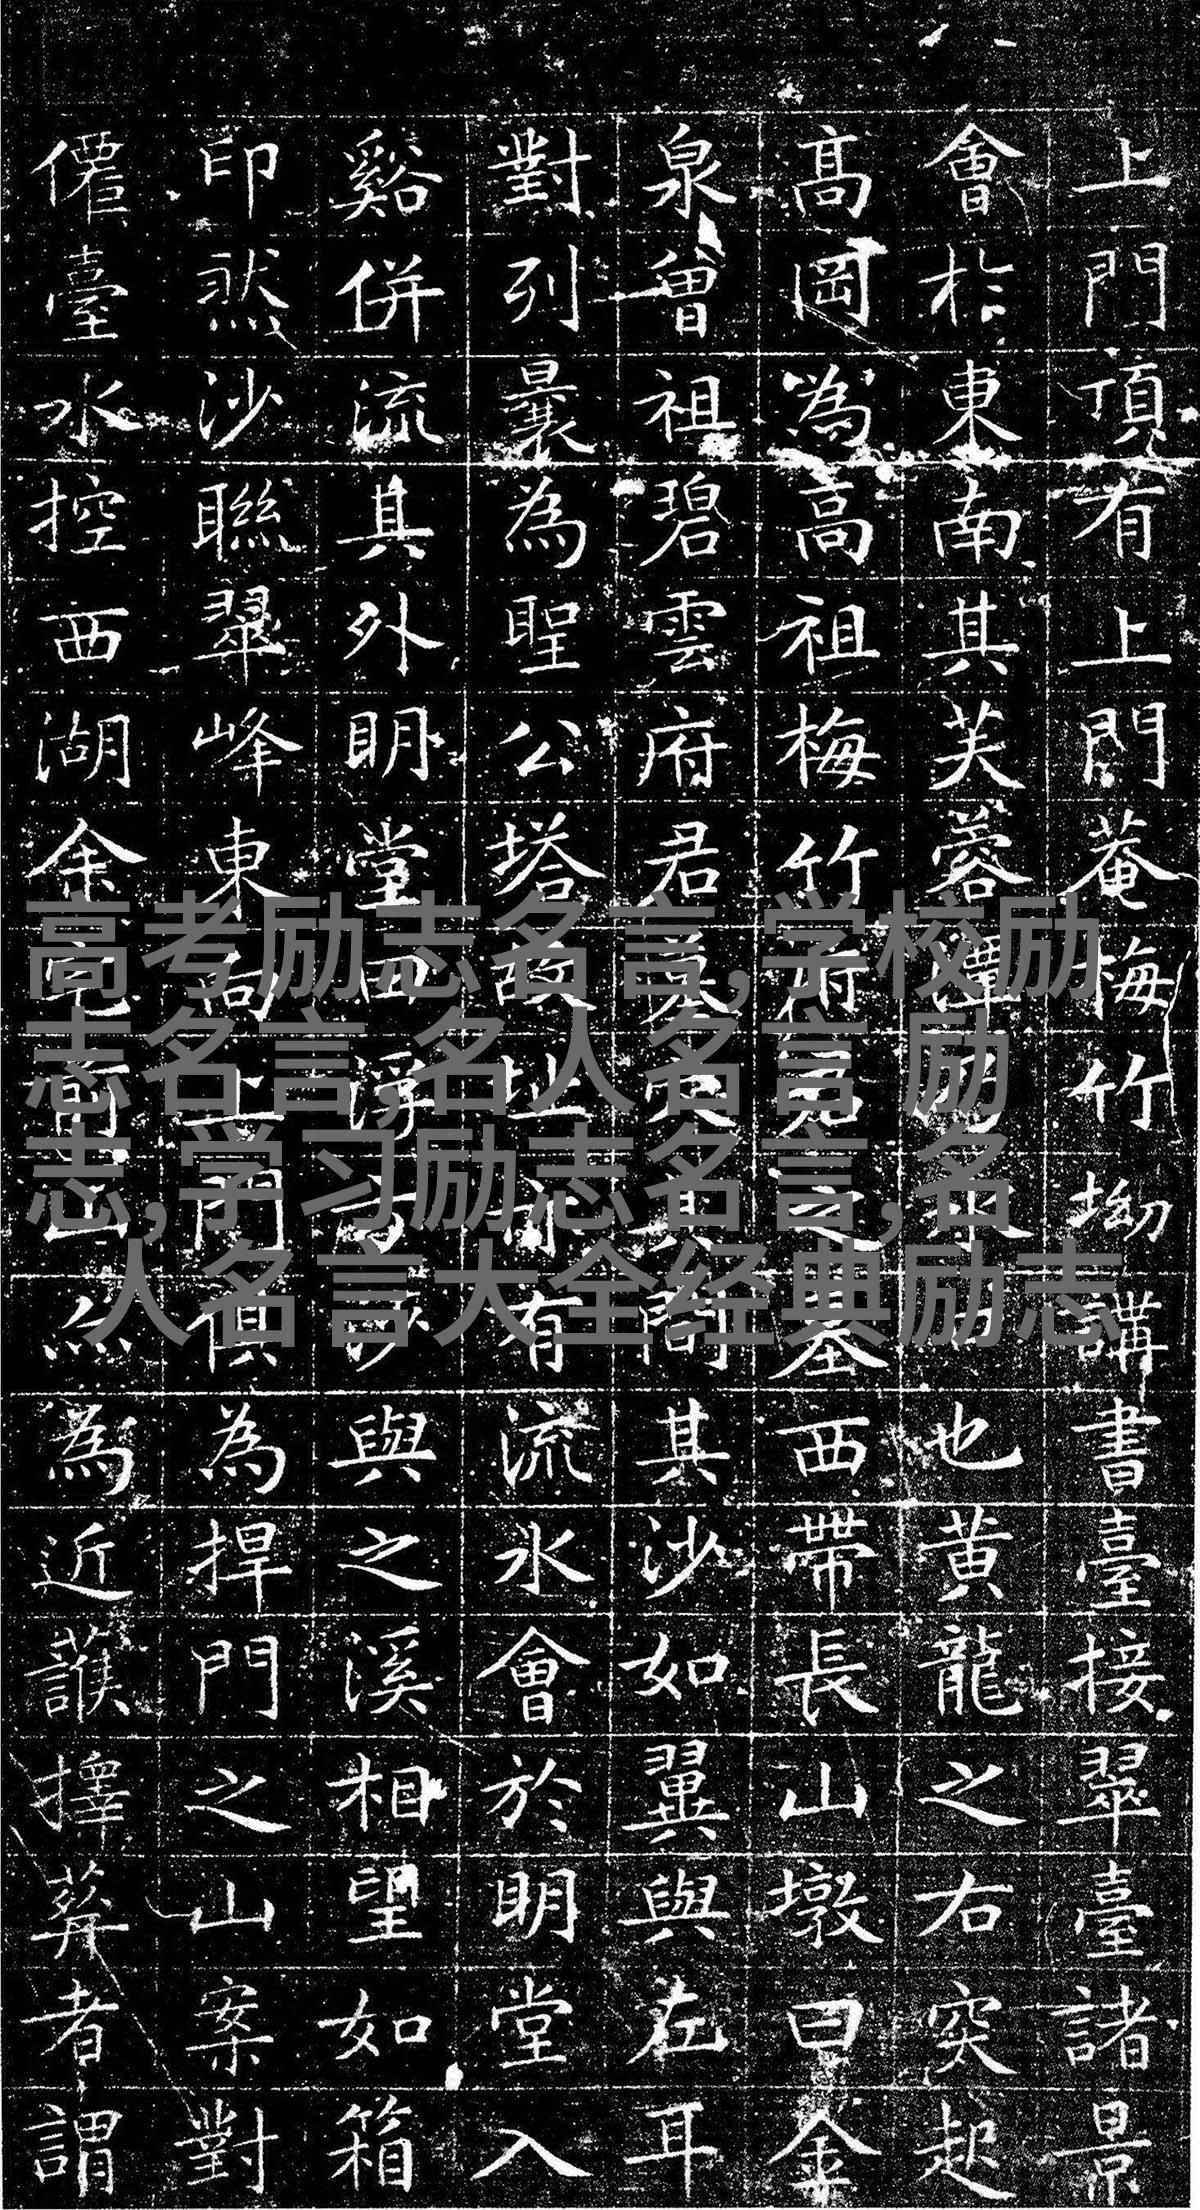 上門頂有上門菴梅竹坳講書臺接翠臺諸景
會於東南其芙蓉潭也黃龍之右突起
高岡為高祖梅竹府君之墓西帶長山墩曰金
泉曾祖碧雲府君墓其間其沙如翼與左耳
對列曩為聖公塔故址亦有流水會於明堂入
谿併流其外明堂浮沙與之溪相望如箱
印然沙聯翠峰東向上門俱為捍門之山案對
僊臺水控西湖余宅前山為近擇葬者謂
高考励志名言,学校励
志名言,名人名言 励
志,学习励志名言,名
人名言大全经典励志